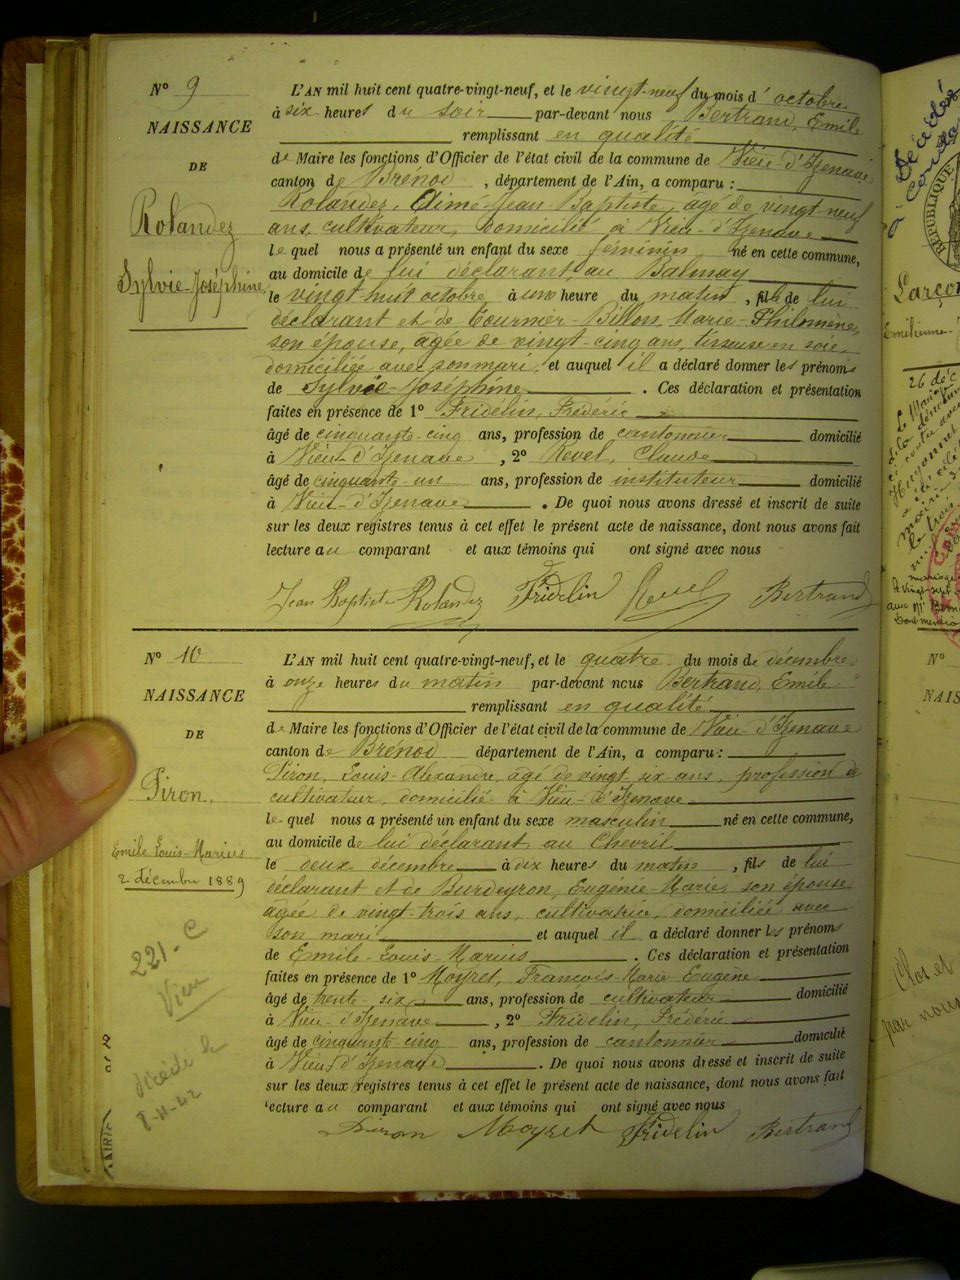 N° 9
NAISSANCE
DE
Rolandez
Sylvie-Joséphine
L'AN mil huit cent quatre-vingt-neuf, et le vingt-neuf du mois d'octobre
à six heures du soir par-devant nous Bertrand, Emile
remplissant en qualité
de Maire les fonctions d'Officier de l'état civil de la commune de Vieu-d'Izenave
canton de Brénod, département de l'Ain, a comparu :
Rolandez, Aimé-Jean-Baptiste, âgé de vingt-neuf
ans, cultivateur, domicilié à Vieu-d'Izenave
lequel nous a présenté un enfant du sexe féminin né en cette commune,
au domicile de lui déclarant au Balmay
le vingt-huit octobre à une heure du matin, fils de lui
déclarant et de Tournier-Billon, Marie-Philomène,
son épouse, agée de vingt-cinq ans, tisseuse en soie,
domiciliée avec son mari, et auquel il a déclaré donner les prénoms
de Sylvie-Joséphine. Ces déclaration et présentation
faites en présence de 1° Fridelin, Frédéric
âgé de cinquante-cinq ans, profession de cantonnier domicilié
à Vieu-d'Izenave, 2° Revel, Claude
âgé de cinquante-un ans, profession de instituteur domicilié
à Vieu-d'Izenave. De quoi nous avons dressé et inscrit de suite
sur les deux registres tenus à cet effet le présent acte de naissance, dont nous avons fait
lecture au comparant et aux témoins qui ont signé avec nous
Jean Baptiste Rolandez Fridelin Revel Bertrand
N° 10
NAISSANCE
DE
Piron,
Emile-Louis-Marius
2 décembre 1889
221-C
Vieu
décédé le
8-11-42
MAIRIE
L'AN mil huit cent quatre-vingt-neuf, et le quatre du mois de décembre
à onze heures du matin par-devant nous Bertrand, Emile
remplissant en qualité
de Maire les fonctions d'Officier de l'état civil de la commune de Vieu-d'Izenave
canton de Brénod département de l'Ain, a comparu :
Piron, Louis-Alexandre, âgé de vingt six ans, profession de
cultivateur, domicilié à Vieu-d'Izenave
lequel nous a présenté un enfant du sexe masculin né en cette commune,
au domicile de lui déclarant au Chevril
le deux décembre à dix heures du matin, fils de lui
déclarant et de Burdeyron, Eugénie-Marie, son épouse
agée de vingt-trois ans, cultivatrice, domiciliée avec
son mari et auquel il a déclaré donner les prénoms
de Emile-Louis-Marius. Ces déclaration et présentation
faites en présence de 1° Moyret, François-Marie-Eugène
âgé de trente-six ans, profession de cultivateur domicilié
à Vieu-d'Izenave, 2° Fridelin, Frédéric
âgé de cinquante cinq ans, profession de cantonnier domicilié
à Vieu-d'Izenave. De quoi nous avons dressé et inscrit de suite
sur les deux registres tenus à cet effet le présent acte de naissance, dont nous avons fait
lecture au comparant et aux témoins qui ont signé avec nous
Piron Moyret Fridelin Bertrand
RÉPUBLIQUE
26 déc
N°
NAIS
Clos et
par nous